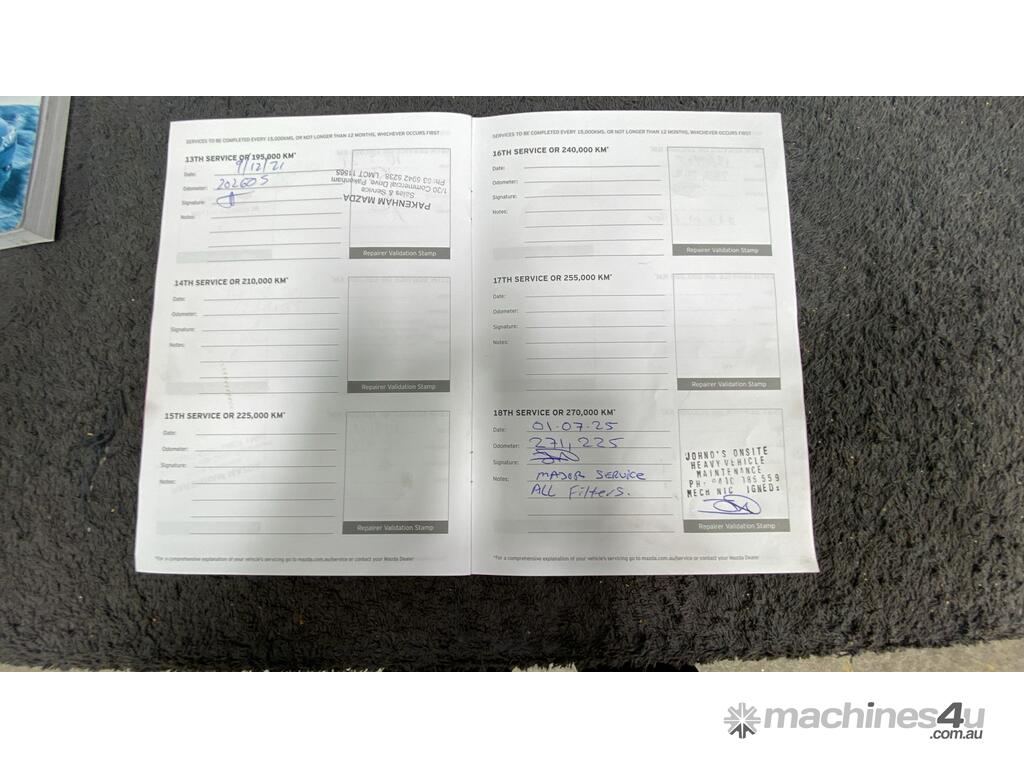 SERVICES TO BE COMPLETED EVERY 15,000KMS, OR NOT LONGER THAN 12 MONTHS, WHICHEVER OCCURS FIRST
13TH SERVICE OR 195,000 KM*
Date: 9/12/21
Odometer: 202605
Signature:
Notes:
PAKENHAM MAZDA
Sales & Service
1/20 Commercial Drive, Pakenham
Ph: 03 5942 5238 LMCT 11565
Repairer Validation Stamp
14TH SERVICE OR 210,000 KM*
Date:
Odometer:
Signature:
Notes:
Repairer Validation Stamp
15TH SERVICE OR 225,000 KM*
Date:
Odometer:
Signature:
Notes:
Repairer Validation Stamp
*For a comprehensive explanation of your vehicle's servicing go to mazda.com.au/service or contact your Mazda Dealer
SERVICES TO BE COMPLETED EVERY 15,000KMS, OR NOT LONGER THAN 12 MONTHS, WHICHEVER OCCURS FIRST
16TH SERVICE OR 240,000 KM*
Date:
Odometer:
Signature:
Notes:
Repairer Validation Stamp
17TH SERVICE OR 255,000 KM*
Date:
Odometer:
Signature:
Notes:
Repairer Validation Stamp
18TH SERVICE OR 270,000 KM*
Date: 01.07.25
Odometer: 271,225
Signature:
Notes: MAJOR SERVICE
ALL Filters.
JOHNO'S ONSITE
HEAVY VEHICLE
MAINTENANCE
PH:
Repairer Validation Stamp
*For a comprehensive explanation of your vehicle's servicing go to mazda.com.au/service or contact your Mazda Dealer
machines4u
.com.au